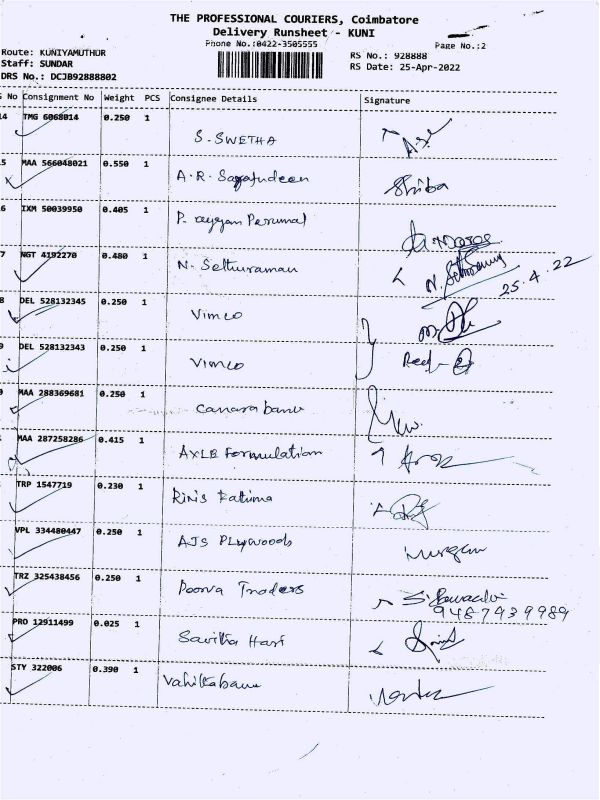 THE PROFESSIONAL COURIERS, Coimbatore
Delivery Runsheet - KUNI
Phone No.:0422-3505555
Page No.:2
Route: KUNIYAMUTHUR
Staff: SUNDAR
DRS No.: DCJB92888802
RS No.: 928888
RS Date: 25-Apr-2022
No Consignment No Weight PCS Consignee Details Signature
14 TMG 6068014 0.250 1 S. SWETHA
5 MAA 566048021 0.550 1 A.R. Shiba
6 IXM 50039950 0.405 1 P. Perumal
7 NGT 4192270 0.480 1 N. Sethuraman 25.4.22
8 DEL 528132345 0.250 1 Vimco
9 DEL 528132343 0.250 1 Vimco
MAA 288369681 0.250 1 Canara
MAA 287258286 0.415 1 AXLE Formulation
TRP 1547719 0.230 1 Fatima
VPL 334480447 0.250 1 AJS PLywoods Murgan
TRZ 325438456 0.250 1 Poorva Traders
9487939989
PRO 12911499 0.025 1 Savitha Hari
STY 322006 0.390 1